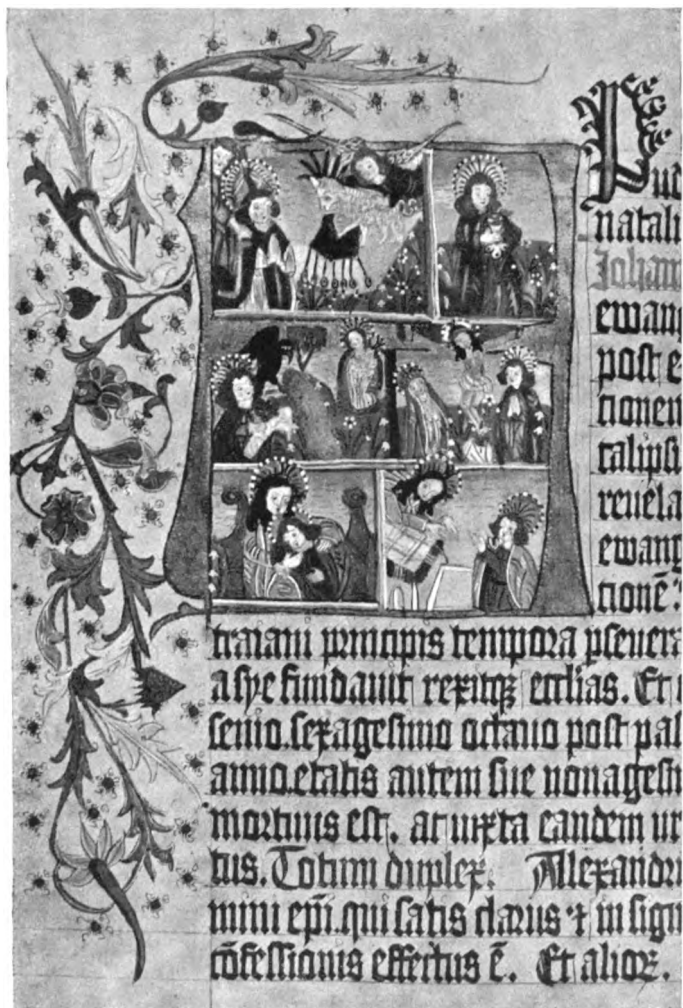 natali
Johan
ewan
post e
tionem
calipsi
revela
ewang
tionē
traiani principis tempora pſeuera
aſye fundauit rexitqꝫ eccliaſ. Et
senio. sexagesimo octauo post pas
anno. etatis autem sue nonagesi
mortuus est. ac iuxta eandem ur
tus. Totum duplex. Alexandri
mini epi. qui satis clarus ⁊ in sign
cōfessionis effectus ē. Et alioꝝ.